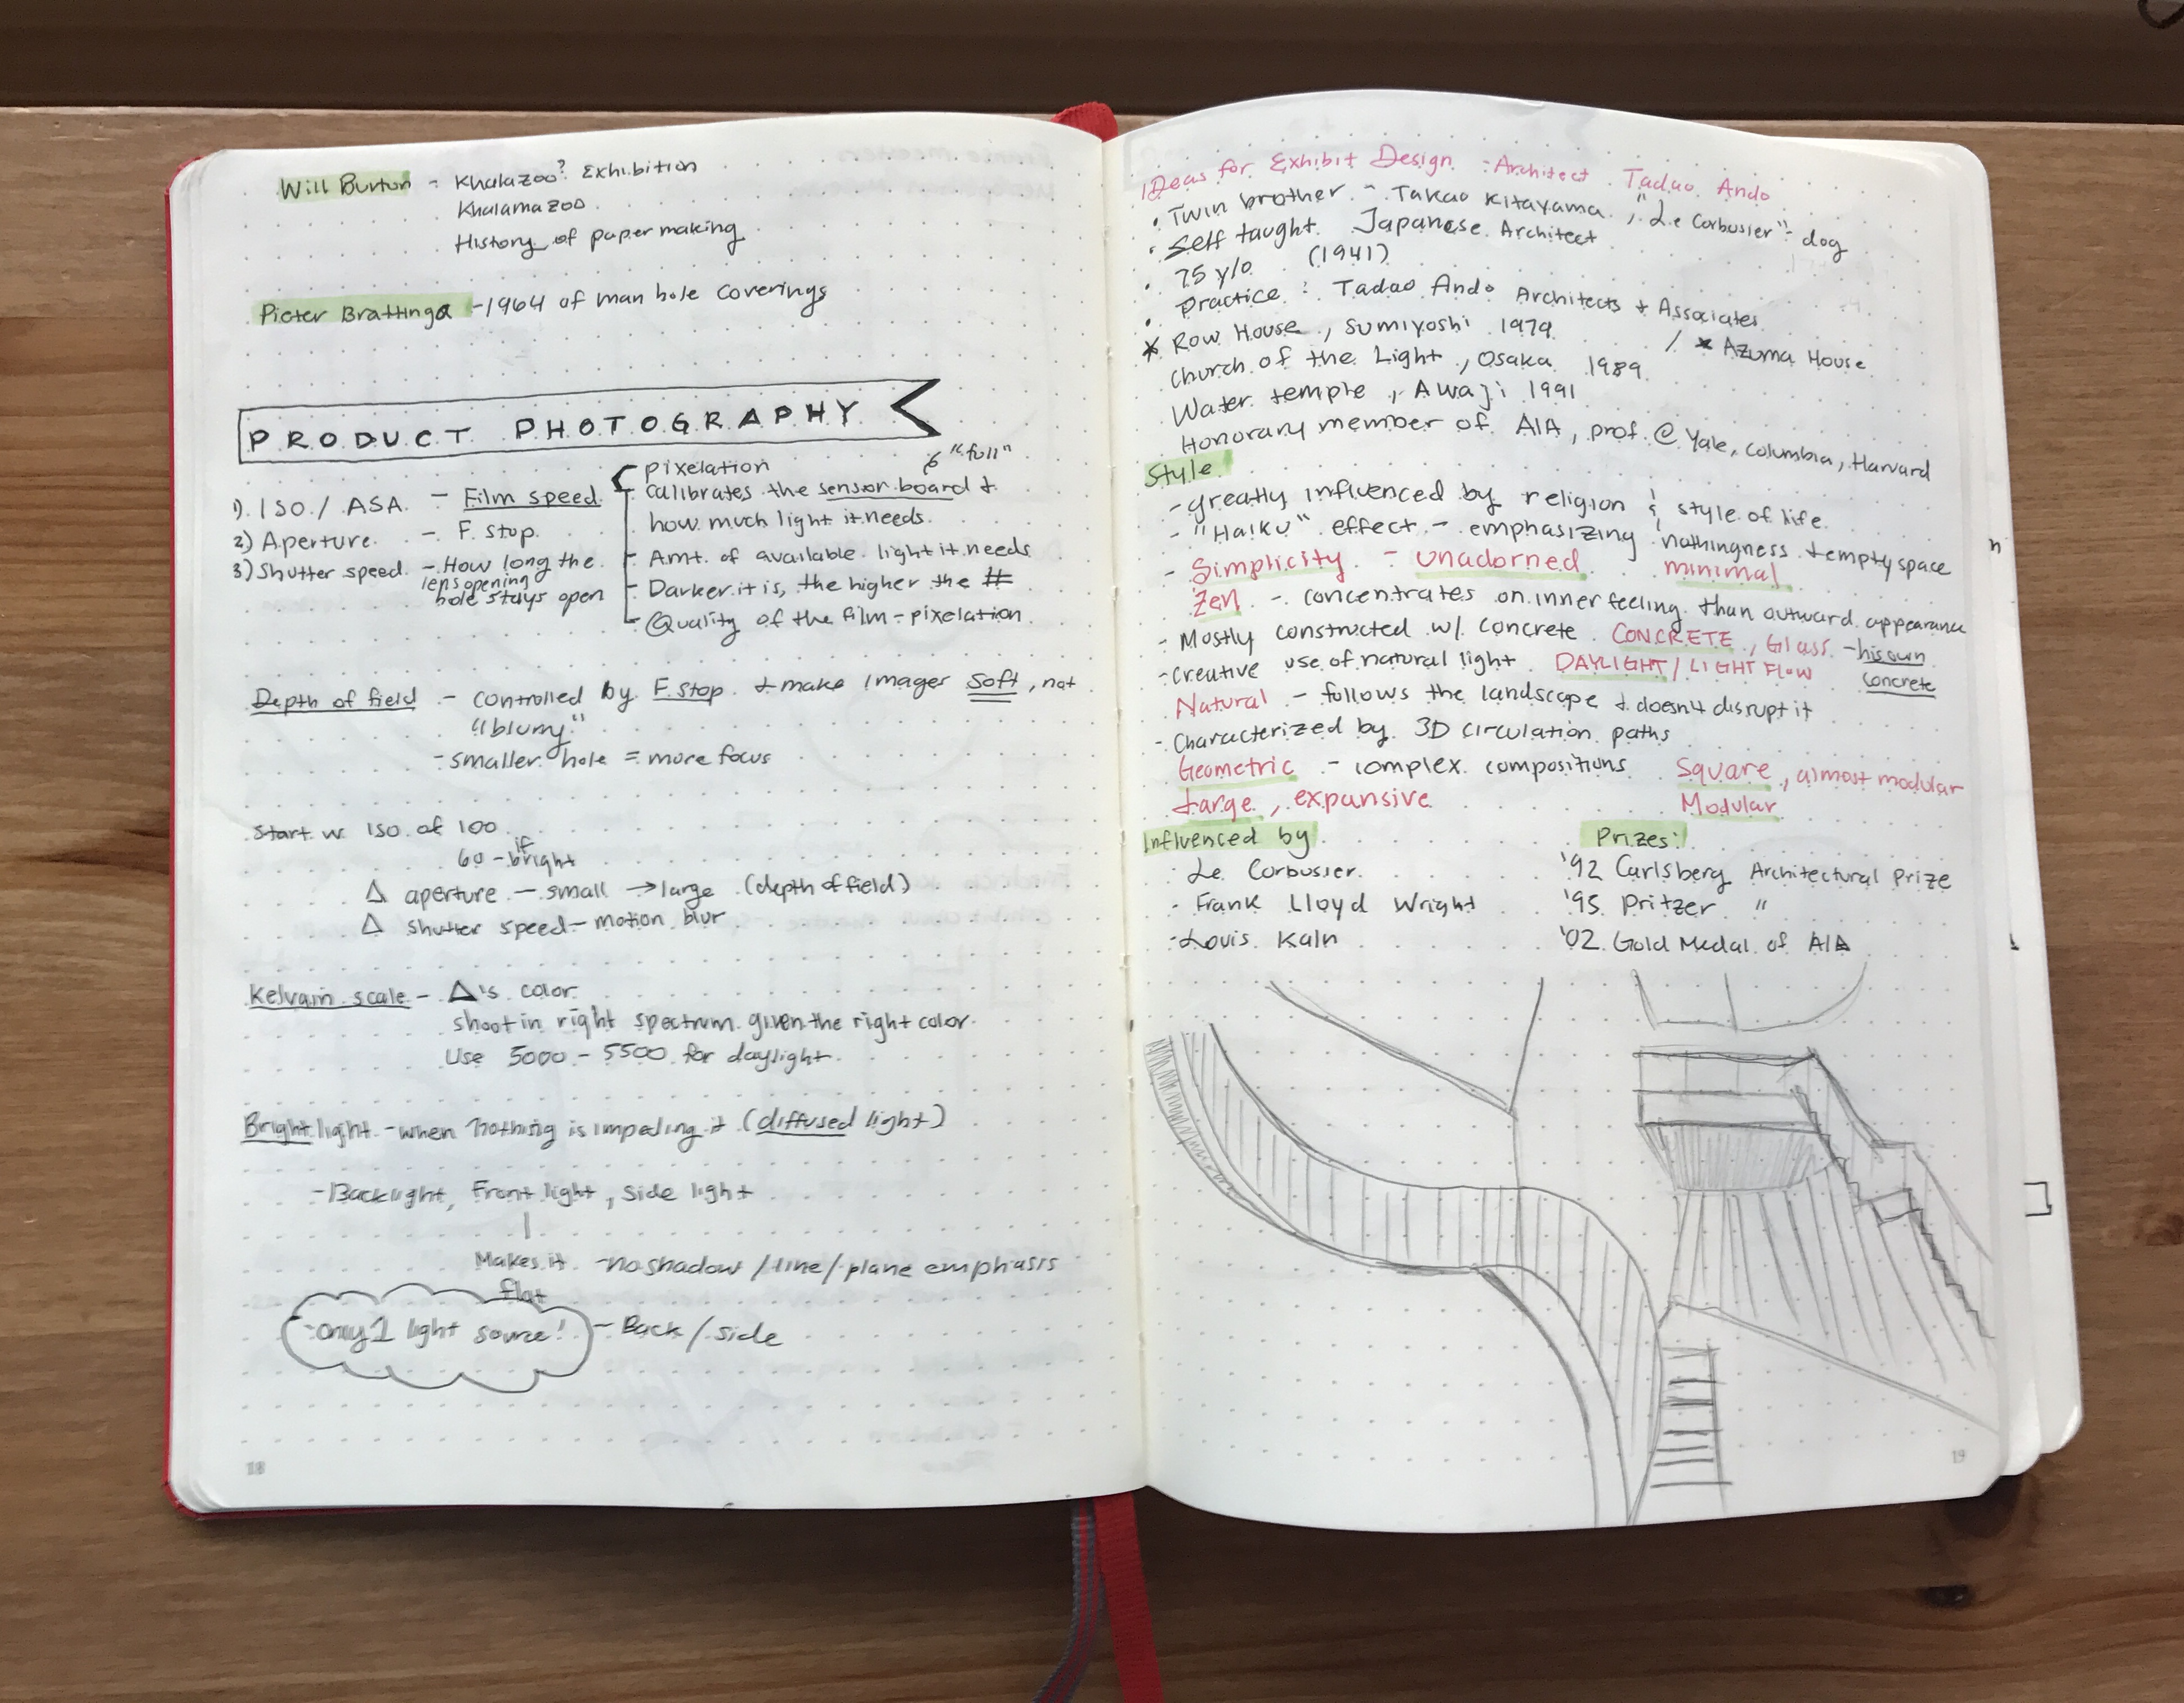 Will Burton - Khalazoo? Exhibition
Khalamazoo
History of paper making
Pieter Brattinga - 1964 of man hole coverings
PRODUCT PHOTOGRAPHY
1) ISO / ASA - Film speed
2) Aperture - F. Stop
3) Shutter speed - How long the
lens opening
hole stays open
pixelation
"full"
calibrates the sensor board &
how much light it needs
- Amt. of available light it needs
- Darker it is, the higher the #
- Quality of the film - pixelation
Depth of field - controlled by F. Stop & make images soft, not
"blurry"
- smaller hole = more focus
Start w ISO of 100
60 - if bright
Δ aperture - small → large (depth of field)
Δ shutter speed - motion blur
Kelvain scale - Δ's color
shoot in right spectrum given the right color
Use 5000 - 5500 for daylight
Bright light - when nothing is impeding it (diffused light)
- Backlight, Front light, side light
Makes it - no shadow / line / plane emphasis
flat
only 1 light source! - Back / side
18
IDeas for Exhibit Design - Architect Tadao Ando
• Twin brother - Takao Kitayama, "Le Corbusier" - dog
• Self taught Japanese Architect
• 75 y/o (1941)
• practice: Tadao Ando Architects & Associates
* Row House, Sumiyoshi 1979 / * Azuma House
Church of the Light, Osaka 1989
Water temple, Awaji 1991
Honorary member of AIA, prof. @ Yale, Columbia, Harvard
Style
- greatly influenced by religion & style of life
- "Haiku" effect - emphasizing nothingness & empty space
- Simplicity - unadorned minimal
Zen - concentrates on inner feeling than outward appearance
- Mostly constructed w/ concrete CONCRETE, Glass - his own
concrete
- Creative use of natural light DAYLIGHT / LIGHT FLOW
Natural - follows the landscape & doesn't disrupt it
- Characterized by 3D circulation paths
Geometric - complex compositions Square, almost modular
Large, expansive Modular
Influenced by
- Le Corbusier
- Frank Lloyd Wright
- Louis Kaln
Prizes:
'92 Carlsberg Architectural Prize
'95 Pritzer "
'02 Gold Medal of AIA
19